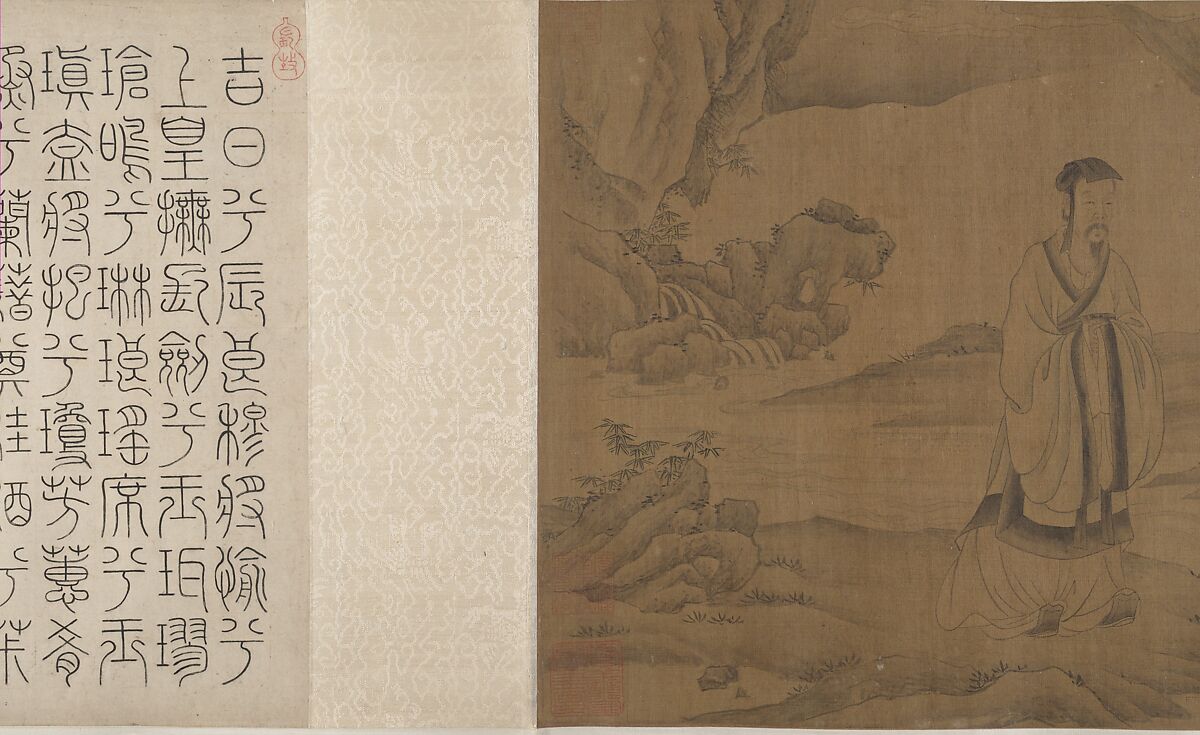 吉日兮辰良穆將愉兮
上皇撫長劍兮玉珥璆
瑲鳴兮琳琅瑤席兮玉
瑱盍將把兮瓊芳蕙肴
烝兮蘭藉奠桂酒兮茮